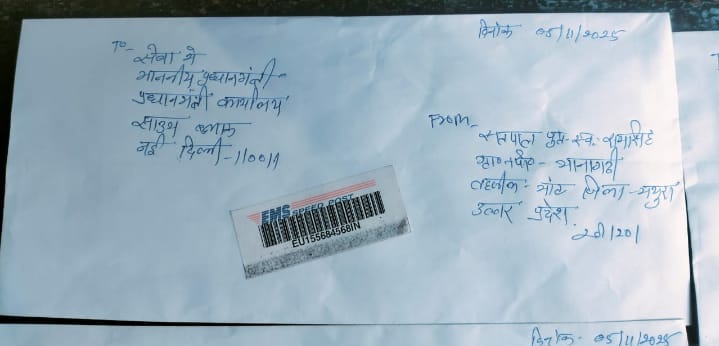 दिनांक 05/11/2025
To-
सेवा में
माननीय प्रधानमंत्री-
प्रधानमंत्री कार्यालय
साउथ ब्लाक
नई दिल्ली-110011
From-
सतपाल पुत्र स्व.
तहसील- मांट जिला-मथुरा
उत्तर प्रदेश.
EMS SPEED POST
EU155684568IN
दिनांक- 05/11/2025